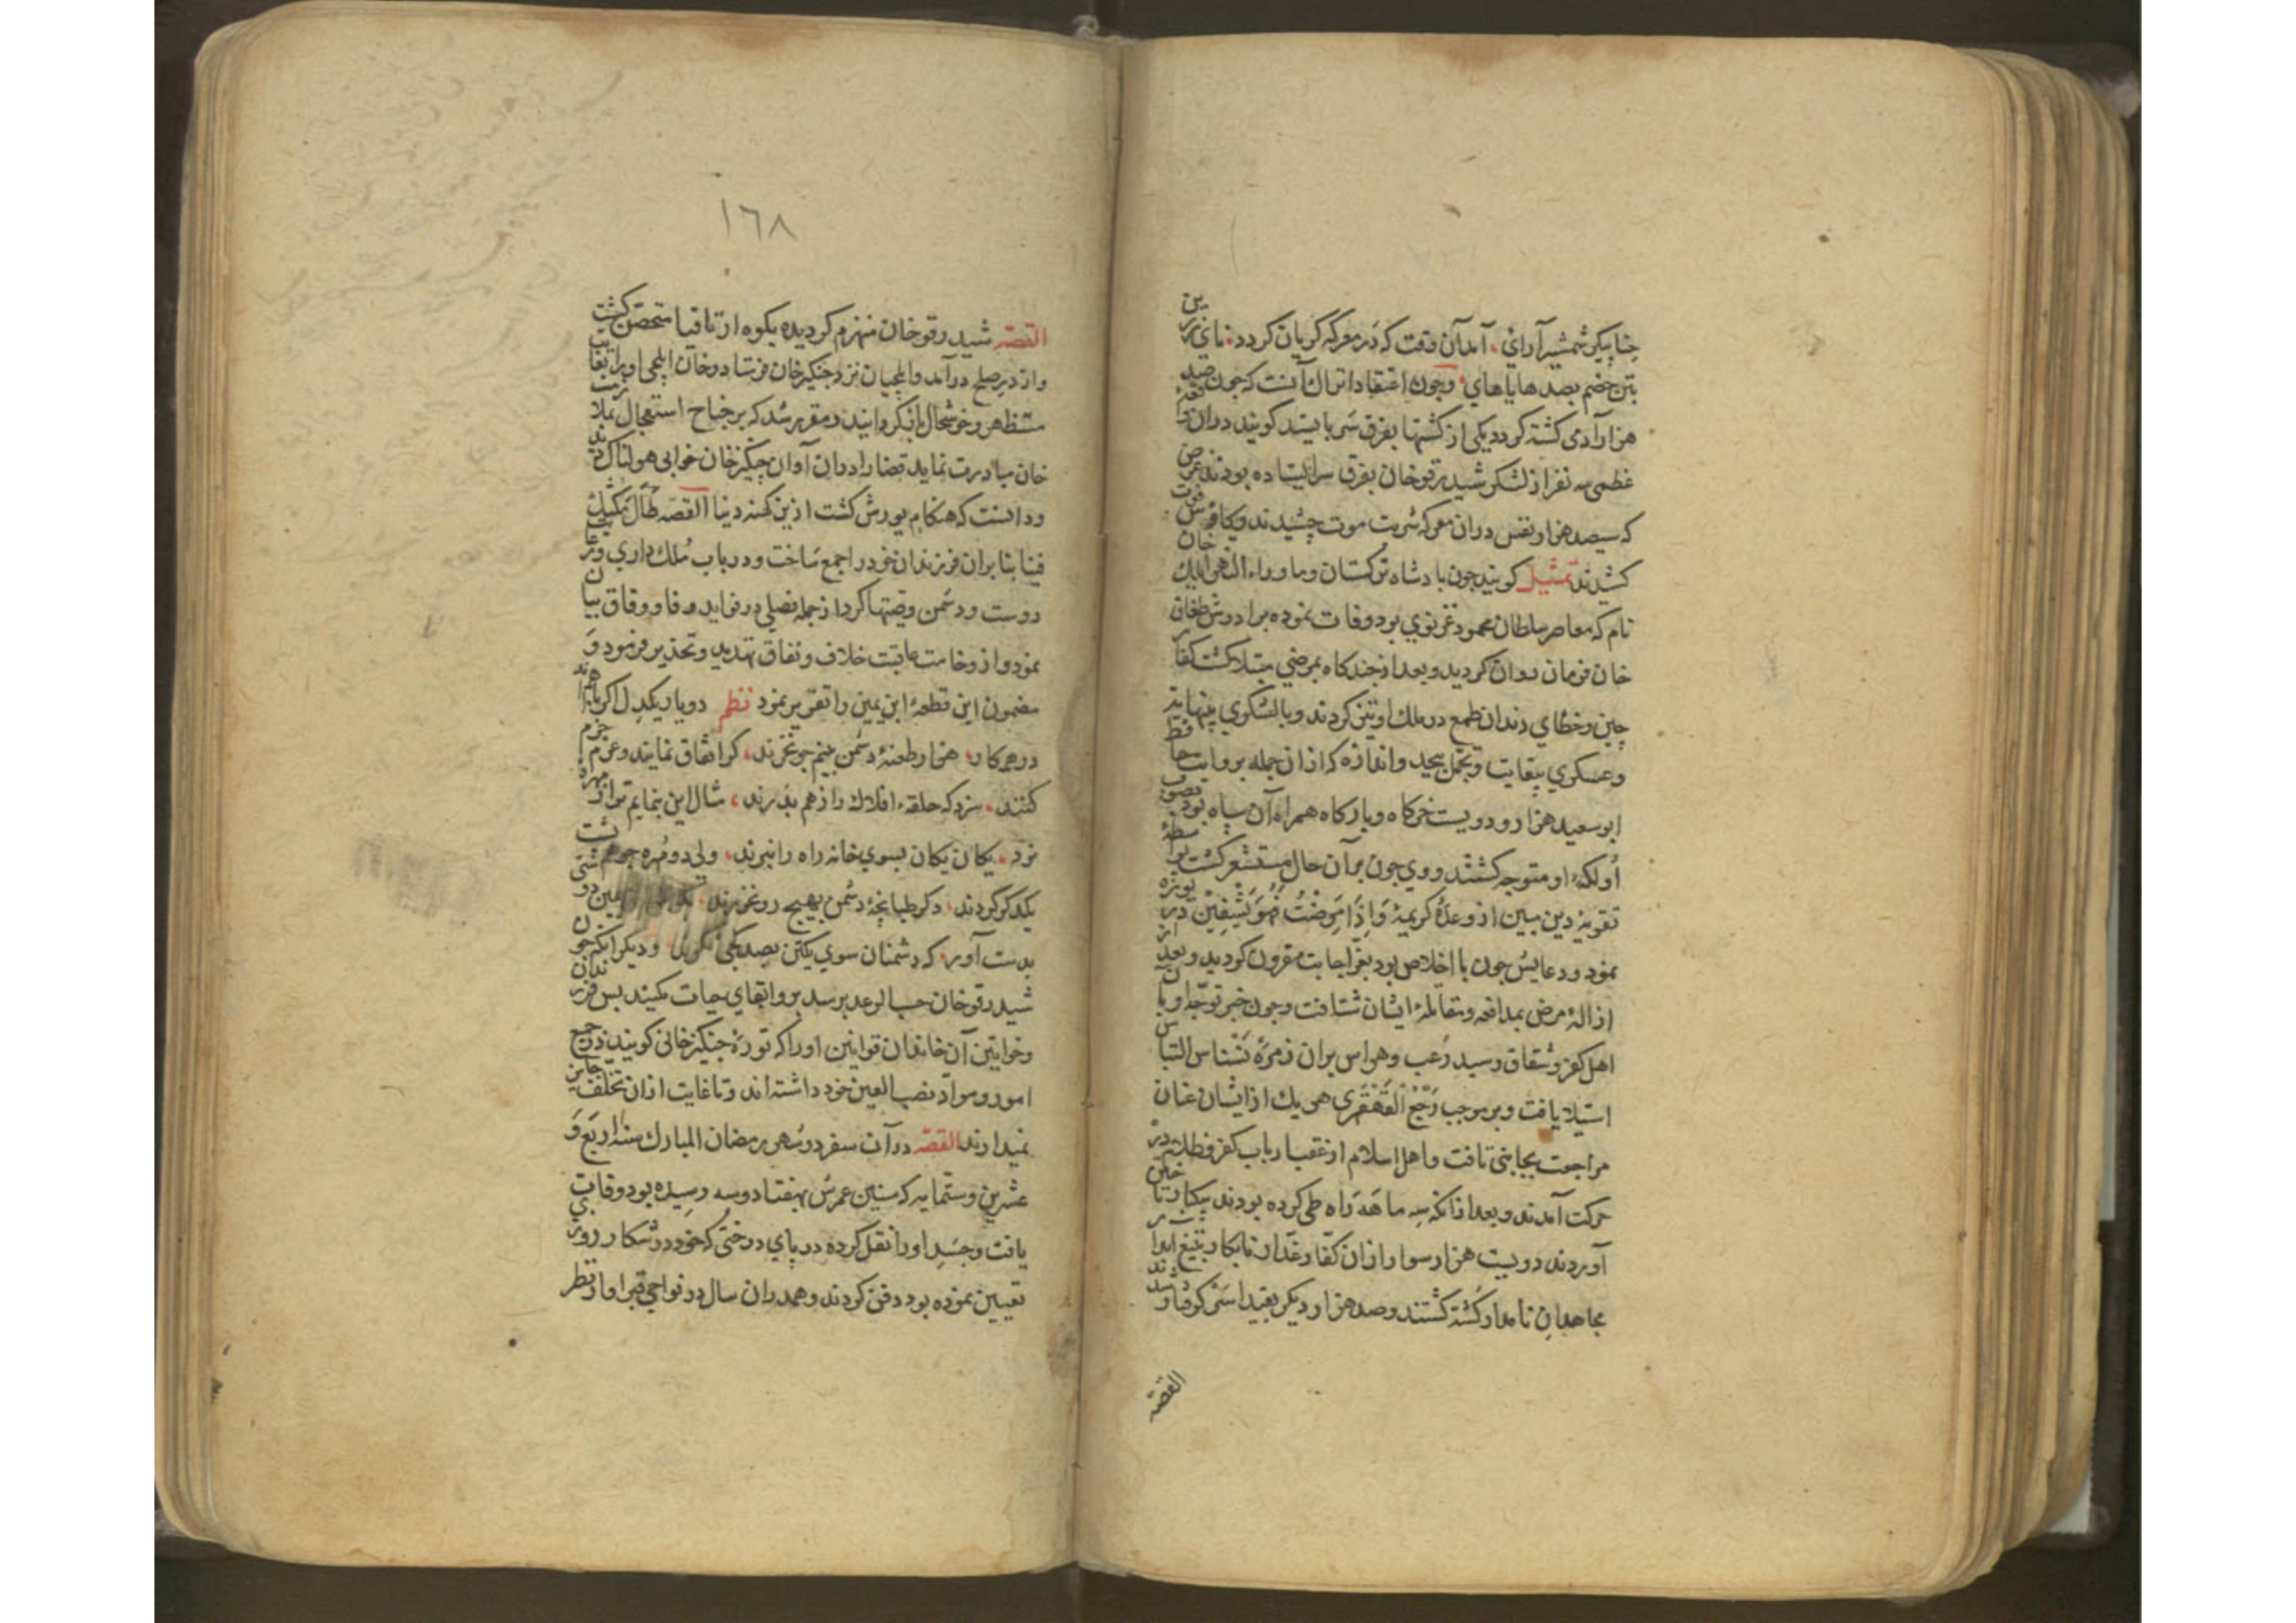 جناپیکر شمشیر آرای، آمد آن وقت که در معرکه کریان کردد، نای زرین
بتن خصم بصد هایاهای، وچون اعتقاد اتراک آنست که چون صد
هزار آدمی کشته کردد یکی از کشتها بفرق سر بایستد کویند دران واقعهٔ
عظمی سه نفر از لشکر شیدرقو خان بفرق سر ایستاده بودند غرض
که سیصد هزار نفس دران معرکه شربت موت چشیدند وکاس فوت
کشیدند تمثیل کویند چون بادشاه ترکستان وما وراء النهر ایلیک خان
نام که معاصر سلطان محمود غزنوی بود وفات نموده برادرش طغان
خان فرمان روان کردید وبعد از چند کاه بمرضی مبتلا کشت کفار
چین وخطای دندان طمع در ملک او تیز کردند وبا لشکری بینهایت
وعسکری بیغایت وتجمل بیحد واندازه که ازان جمله بروایت حافظ
ابو سعید هزار ودویست خرکاه وبارکاه همراه آن سپاه بود بصوب
اولکهٔ او متوجه کشتند ووی چون بر آن حال مستشعر کشت بواسطهٔ
تقویهٔ دین مبین از وعدهٔ کریمهٔ وَاِذَا مَرِضْتُ فَهُوَ یَشْفِینْ دریوزه
نمود ودعایش چون با اخلاص بود بعز اجابت مقرون کردید وبعد از
ازالهٔ مرض بمدافعه ومقابلهٔ ایشان شتافت وچون خبر توجه او بان
اهل کفر وشقاق رسید رعب وهراس بران زمرهٔ نسناس التباس
استیلا یافت وبر موجب رَجَعَ القَهْقَرِی هر یک از ایشان عنان
مراجعت بجانبی تافت واهل اسلام از عقب ارباب کفر وظلام در
حرکت آمدند وبعد ازانکه سه ماهه راه طی کرده بودند بیکبار تاختن
آوردند دویست هزار سوار ازان کفار غدار نابکار بتیغ آبدار
مجاهدان نامدار کشته کشتند وصد هزار دیکر بقید اسر کرفتار شدند
القصه
١٦٨
القصه شیدرقو خان منهزم کردیده بکوه ارتاقیا متحصن کشت
واز در صلح درآمد وایلچیان نزد چنکیز خان فرستاد وخان ایلچی اورا بغایت
مستظهر وخوشحال بازکردانید ومقرر شد که بر جناح استعجال بملازمت
خان مبادرت نماید قضا را دران آوان چنکیز خان خوابی هولناک دید
ودانست که هنکام یورش کشت ازین کهنه دنیا القصه طال تمکیک
فینا بنابران فرزندان خود را جمع ساخت ودر باب ملک داری ورعایت
دوست ودشمن وصیتها کرد از جمله فصلی در فواید وفا ووفاق بیان
نمود واز وخامت عاقبت خلاف ونفاق تهدید وتحذیر فرمود و
مضمون این قطعهٔ ابن یمین را تقریر نمود نظم دویار یکدل اکر باهم اند
در همه کار، هزار طعنهٔ دشمن بنیم جو نخرند، کر اتفاق نمایند وعزم جزم
کنند، سزد که حلقهٔ افلاک را ز هم بدرند، مثال این بنمایم ترا ز مهرهٔ
نرد، یکان یکان بسوی خانه راه را نبرند، ولی دو مهره چو هم پشت
یکدکر کردند، دکر طپانچهٔ دشمن بهیچ رو نخورند،
بدست آور، که دشمنان سوی یکتن بصد یکی نکرند، ودیکر آنکه چون
شیدرقو خان حسب الوعد برسد بر وابقای حیات مکنید پس فرزندان
وخواتین آن خاندان قوانین اورا که تورهٔ چنکیز خانی کویند در جمیع
امور ومواد نصب العین خود داشته اند وتا غایت ازان تخلف جایز
نمیدارند القصه در آن سفر در شهر رمضان المبارک سنه اربع و
عشرین وستمایه که سنین عمرش بهفتاد وسه رسیده بود وفات
یافت وجسد اورا نقل کرده در پای درختی که خود در شکار روزی
تعیین نموده بود دفن کردند وهمدران سال در نواحی قبر او از قطر